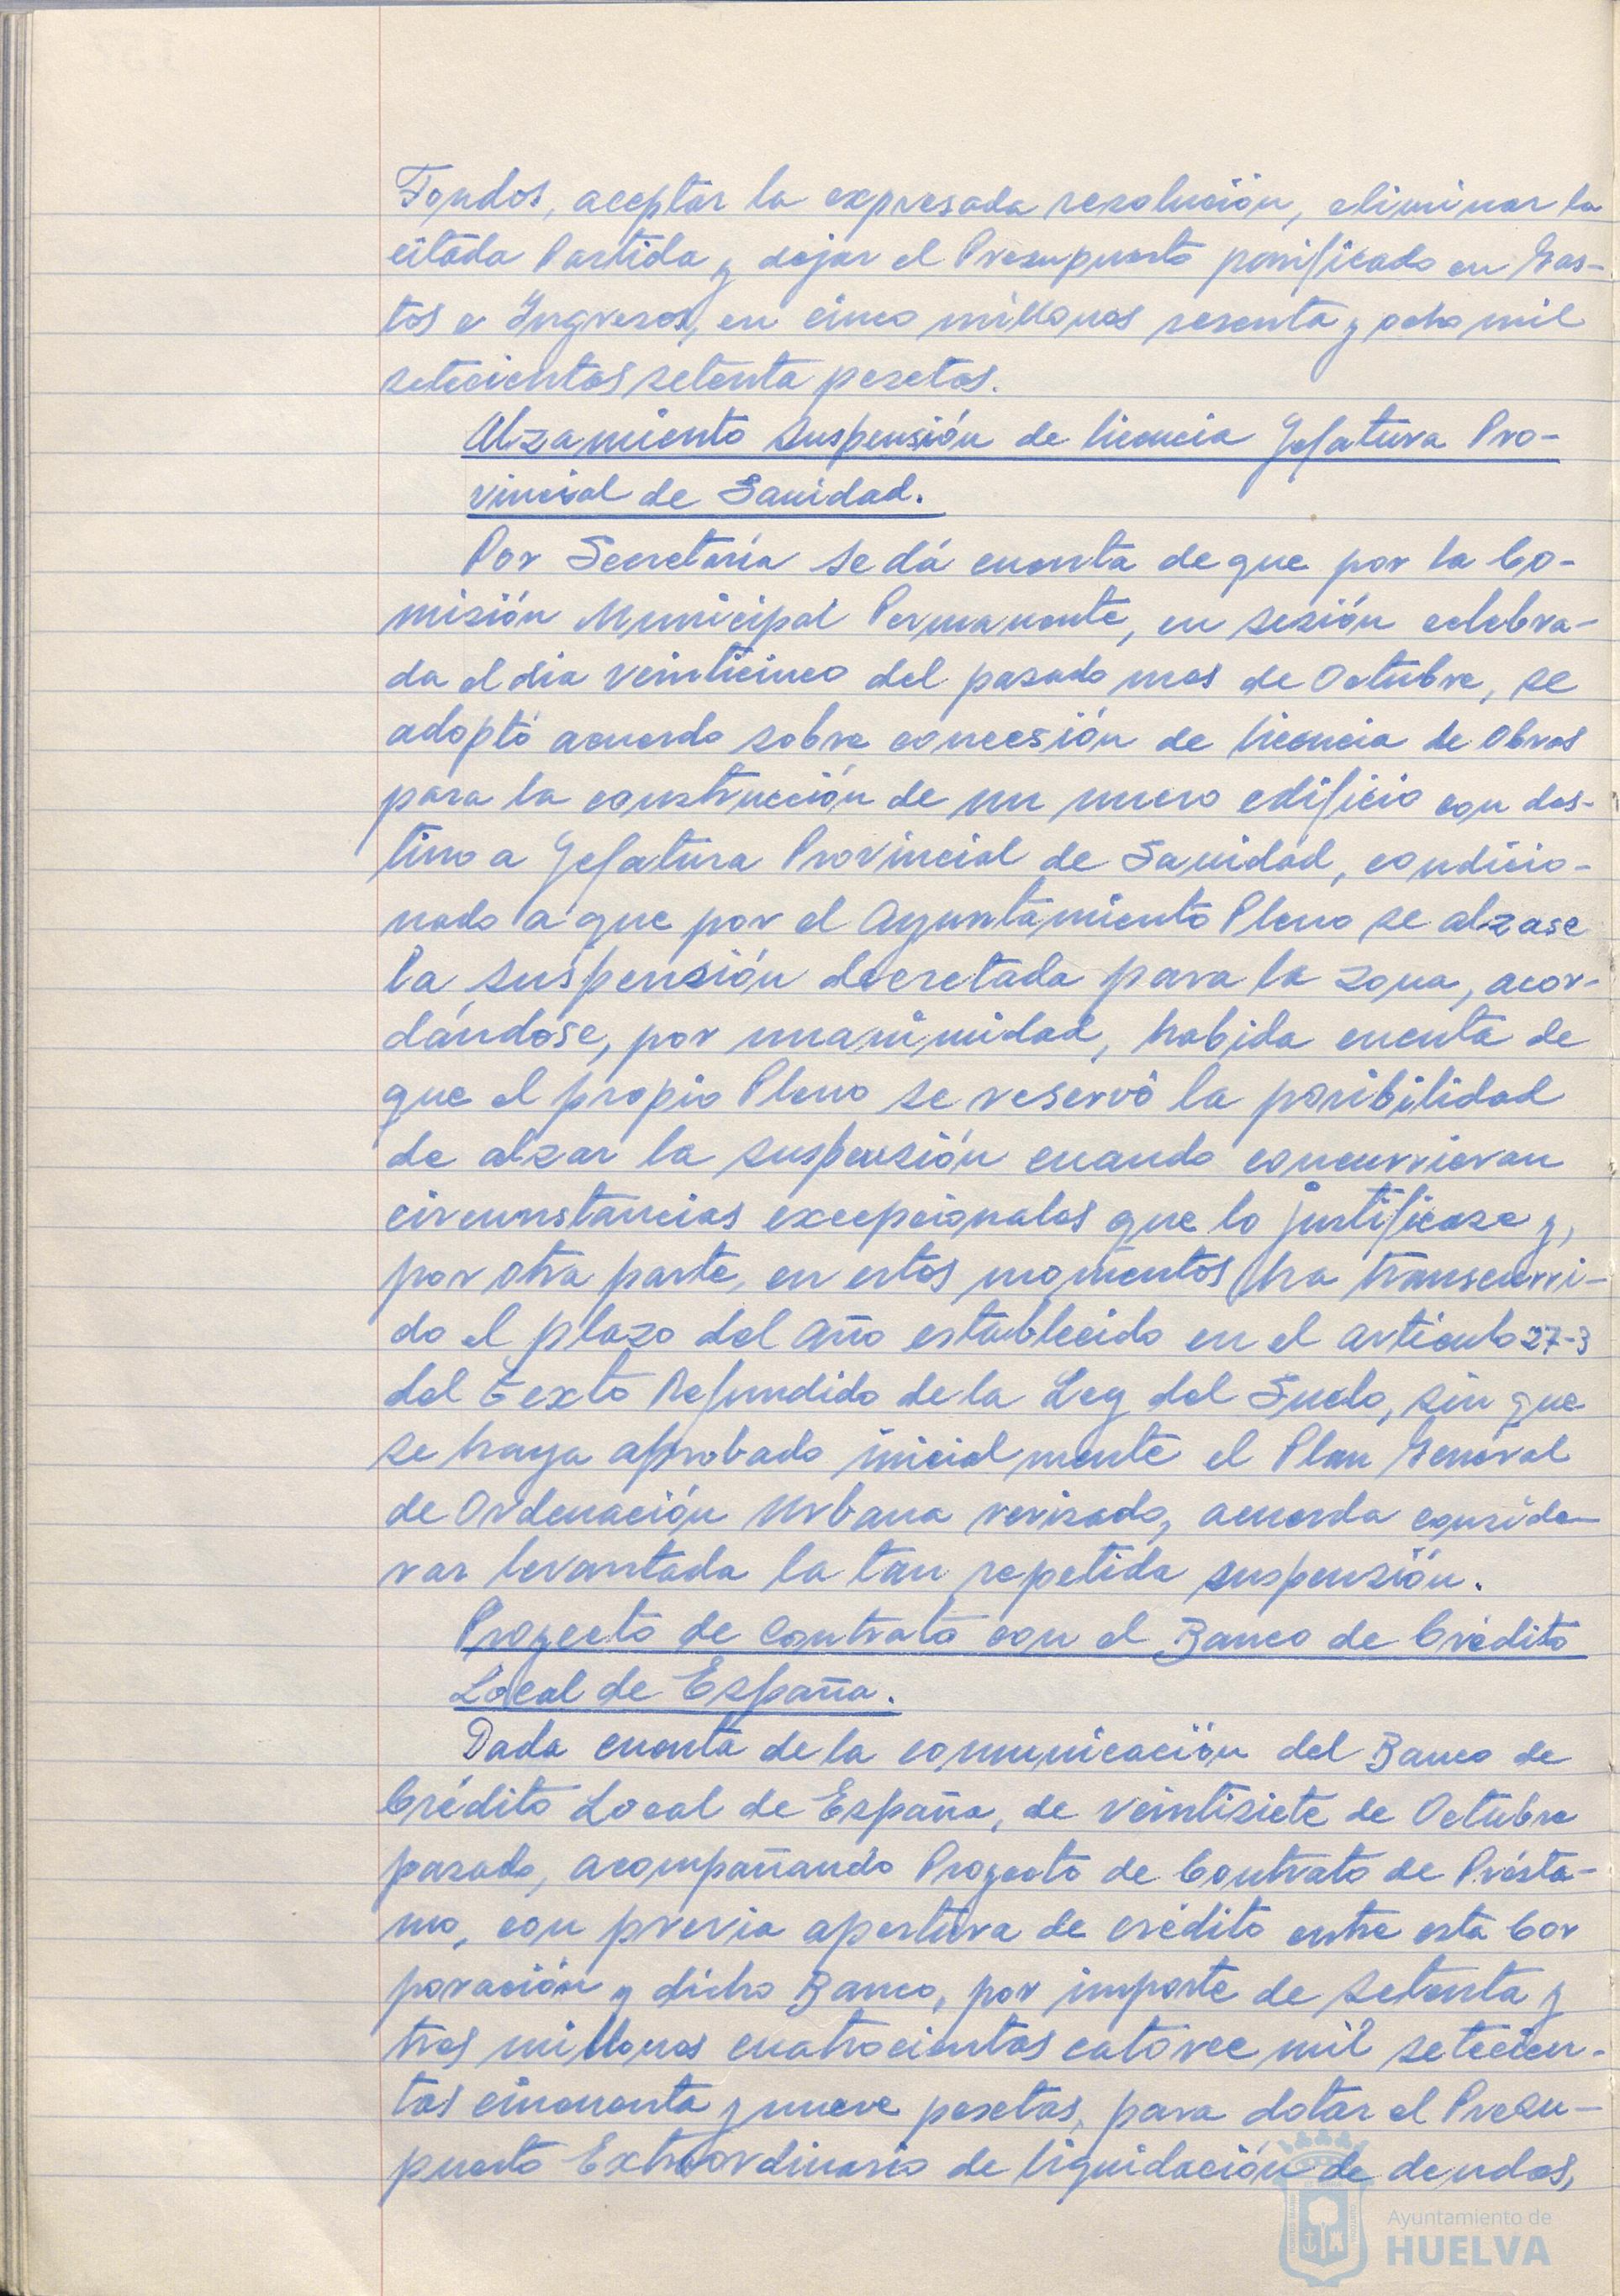 Fondos, aceptar la expresada resolución, eliminar la
citada Partida y dejar el Presupuesto ponificado en Gas-
tos e Ingresos, en cinco millones sesenta y ocho mil
setecientas setenta pesetas.
Alzamiento suspensión de licencia Jefatura Pro-
vincial de Sanidad.
Por Secretaría se dá cuenta de que por la Co-
misión Municipal Permanente, en sesión celebra-
da el dia veinticinco del pasado mes de Octubre, se
adoptó acuerdo sobre concesión de licencia de Obras
para la construcción de un nuevo edificio con des-
tino a Jefatura Provincial de Sanidad, condicio-
nado a que por el Ayuntamiento Pleno se alzase
la suspensión decretada para la zona, acor-
dándose, por unanimidad, habida cuenta de
que el propio Pleno se reservó la posibilidad
de alzar la suspensión cuando concurrieran
circunstancias excepcionales que lo justificase y,
por otra parte, en estos momentos ha transcurri-
do el plazo del año establecido en el artículo 27-3
del Texto Refundido de la Ley del Suelo, sin que
se haya aprobado inicialmente el Plan General
de Ordenación Urbana revisado, acuerda conside-
rar levantada la tan repetida suspensión.
Proyecto de contrato con el Banco de Crédito
Local de España.
Dada cuenta de la comunicación del Banco de
Crédito Local de España, de veintisiete de Octubre
pasado, acompañando Proyecto de Contrato de Présta-
mo, con previa apertura de crédito entre esta Cor
poración y dicho Banco, por importe de setenta y
tres millones cuatrocientas catorce mil setecien-
tas cincuenta y nueve pesetas, para dotar el Presu-
puesto Extraordinario de liquidación de deudas,
Ayuntamiento de
HUELVA